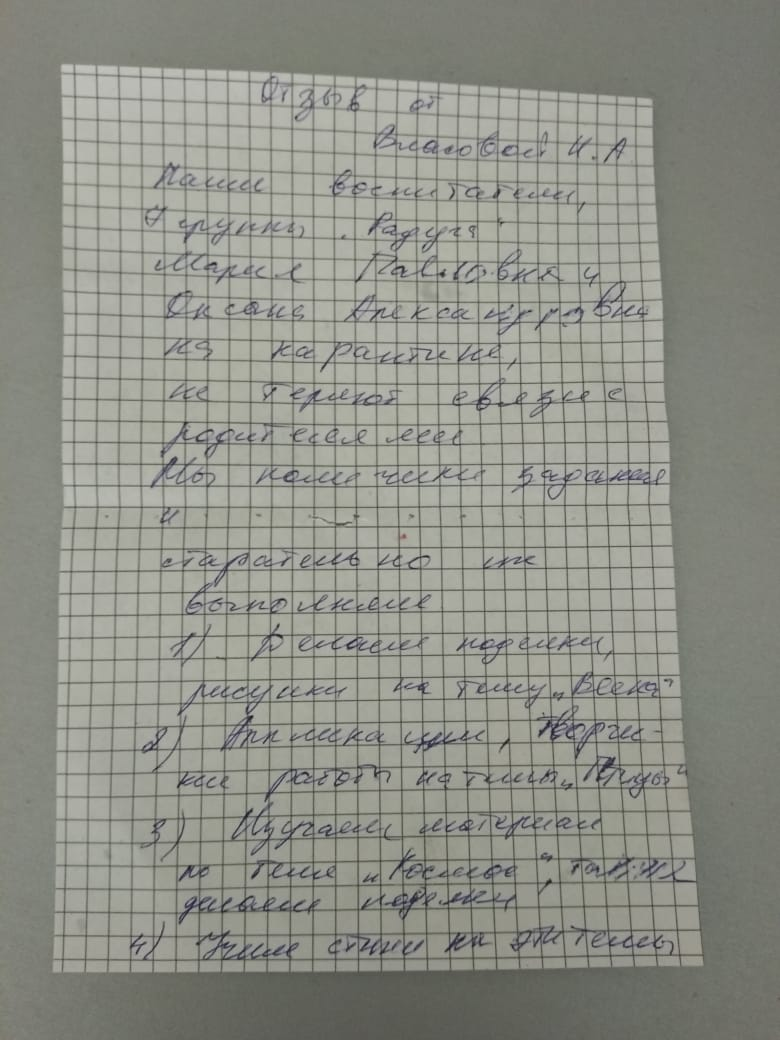 Отзыв от
Власовой Н.А
Наши воспитатели,
7 группы „Радуга"
Мария Павловна и
Оксана Александровна
на карантине,
не теряют связи с
родителями
Мы получили задания
и
старательно их
выполняли
1) Делаем поделки,
рисунки на тему „Весна"
2) Аппликации, творчи-
кие работы на темы „Птицы"
3) Изучаем материал
по теме „Космос", также
делаем поделки
4) Учим стихи на эти темы